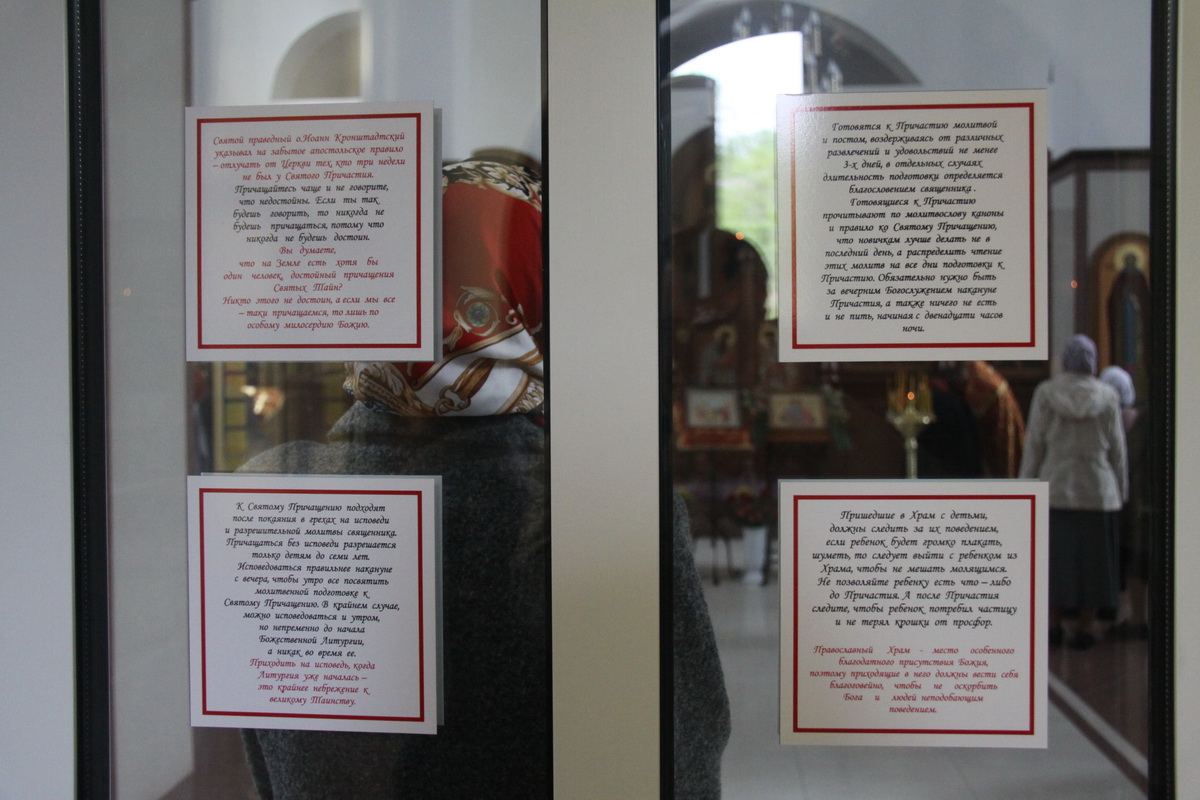 Святой праведный о.Иоанн Кронштадтский
указывал на забытое апостольское правило
– отлучать от Церкви тех кто три недели
не был у Святого Причастия.
Причащайтесь чаще и не говорите,
что недостойны. Если ты так
будешь говорить, то никогда не
будешь причащаться, потому что
никогда не будешь достоин.
Вы думаете,
что на Земле есть хотя бы
один человек, достойный причащения
Святых Тайн?
Никто этого не достоин, а если мы все
– таки причащаемся, то лишь по
особому милосердию Божию.
К Святому Причащению подходят
после покаяния в грехах на исповеди
и разрешительной молитвы священника.
Причащаться без исповеди разрешается
только детям до семи лет.
Исповедоваться правильнее накануне
с вечера, чтобы утро все посвятить
молитвенной подготовке к
Святому Причащению. В крайнем случае,
можно исповедоваться и утром,
но непременно до начала
Божественной Литургии,
а никак во время ее.
Приходить на исповедь, когда
Литургия уже началась –
это крайнее небрежение к
великому Таинству.
Готовятся к Причастию молитвой
и постом, воздерживаясь от различных
развлечений и удовольствий не менее
3-х дней, в отдельных случаях
длительность подготовки определяется
благословением священника .
Готовящиеся к Причастию
прочитывают по молитвослову каноны
и правило ко Святому Причащению,
что новичкам лучше делать не в
последний день, а распределить чтение
этих молитв на все дни подготовки к
Причастию. Обязательно нужно быть
за вечерним Богослужением накануне
Причастия, а также ничего не есть
и не пить, начиная с двенадцати часов
ночи.
Пришедшие в Храм с детьми,
должны следить за их поведением,
если ребенок будет громко плакать,
шуметь, то следует выйти с ребенком из
Храма, чтобы не мешать молящимся.
Не позволяйте ребенку есть что – либо
до Причастия. А после Причастия
следите, чтобы ребенок потребил частицу
и не терял крошки от просфор.
Православный Храм - место особенного
благодатного присутствия Божия,
поэтому приходящие в него должны вести себя
благоговейно, чтобы не оскорбить
Бога и людей неподобающим
поведением.